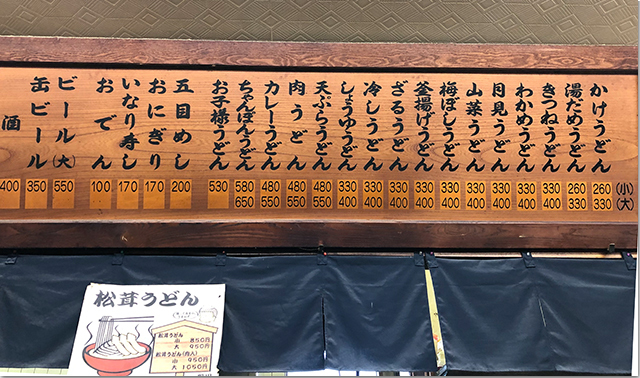 かけうどん 260 330
湯だめうどん 260 330
きつねうどん 330 400
わかめうどん 330 400
月見うどん 330 400
山菜うどん 330 400
梅ぼしうどん 330 400
釜揚げうどん 330 400
ざるうどん 330 400
冷しうどん 330 400
しょうゆうどん 330 400
天ぷらうどん 480 550
肉うどん 480 550
カレーうどん 480 550
ちゃんぽんうどん 580 650
お子様うどん 530
五目めし 200
おにぎり 170
いなり寿し 170
おでん 100
ビール(大) 550
缶ビール 350
酒 400
(小)
(大)
松茸うどん
松茸うどん
850円
大 950円
松茸うどん(肉入)
950円
大 1050円